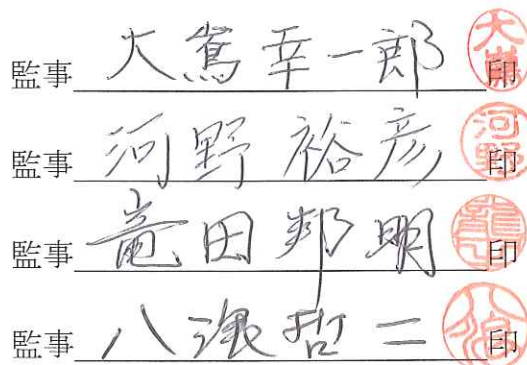 監事 大嶌幸一郎 印
監事 河野 裕彦 印
監事 竜田邦明 印
監事 八浪哲二 印